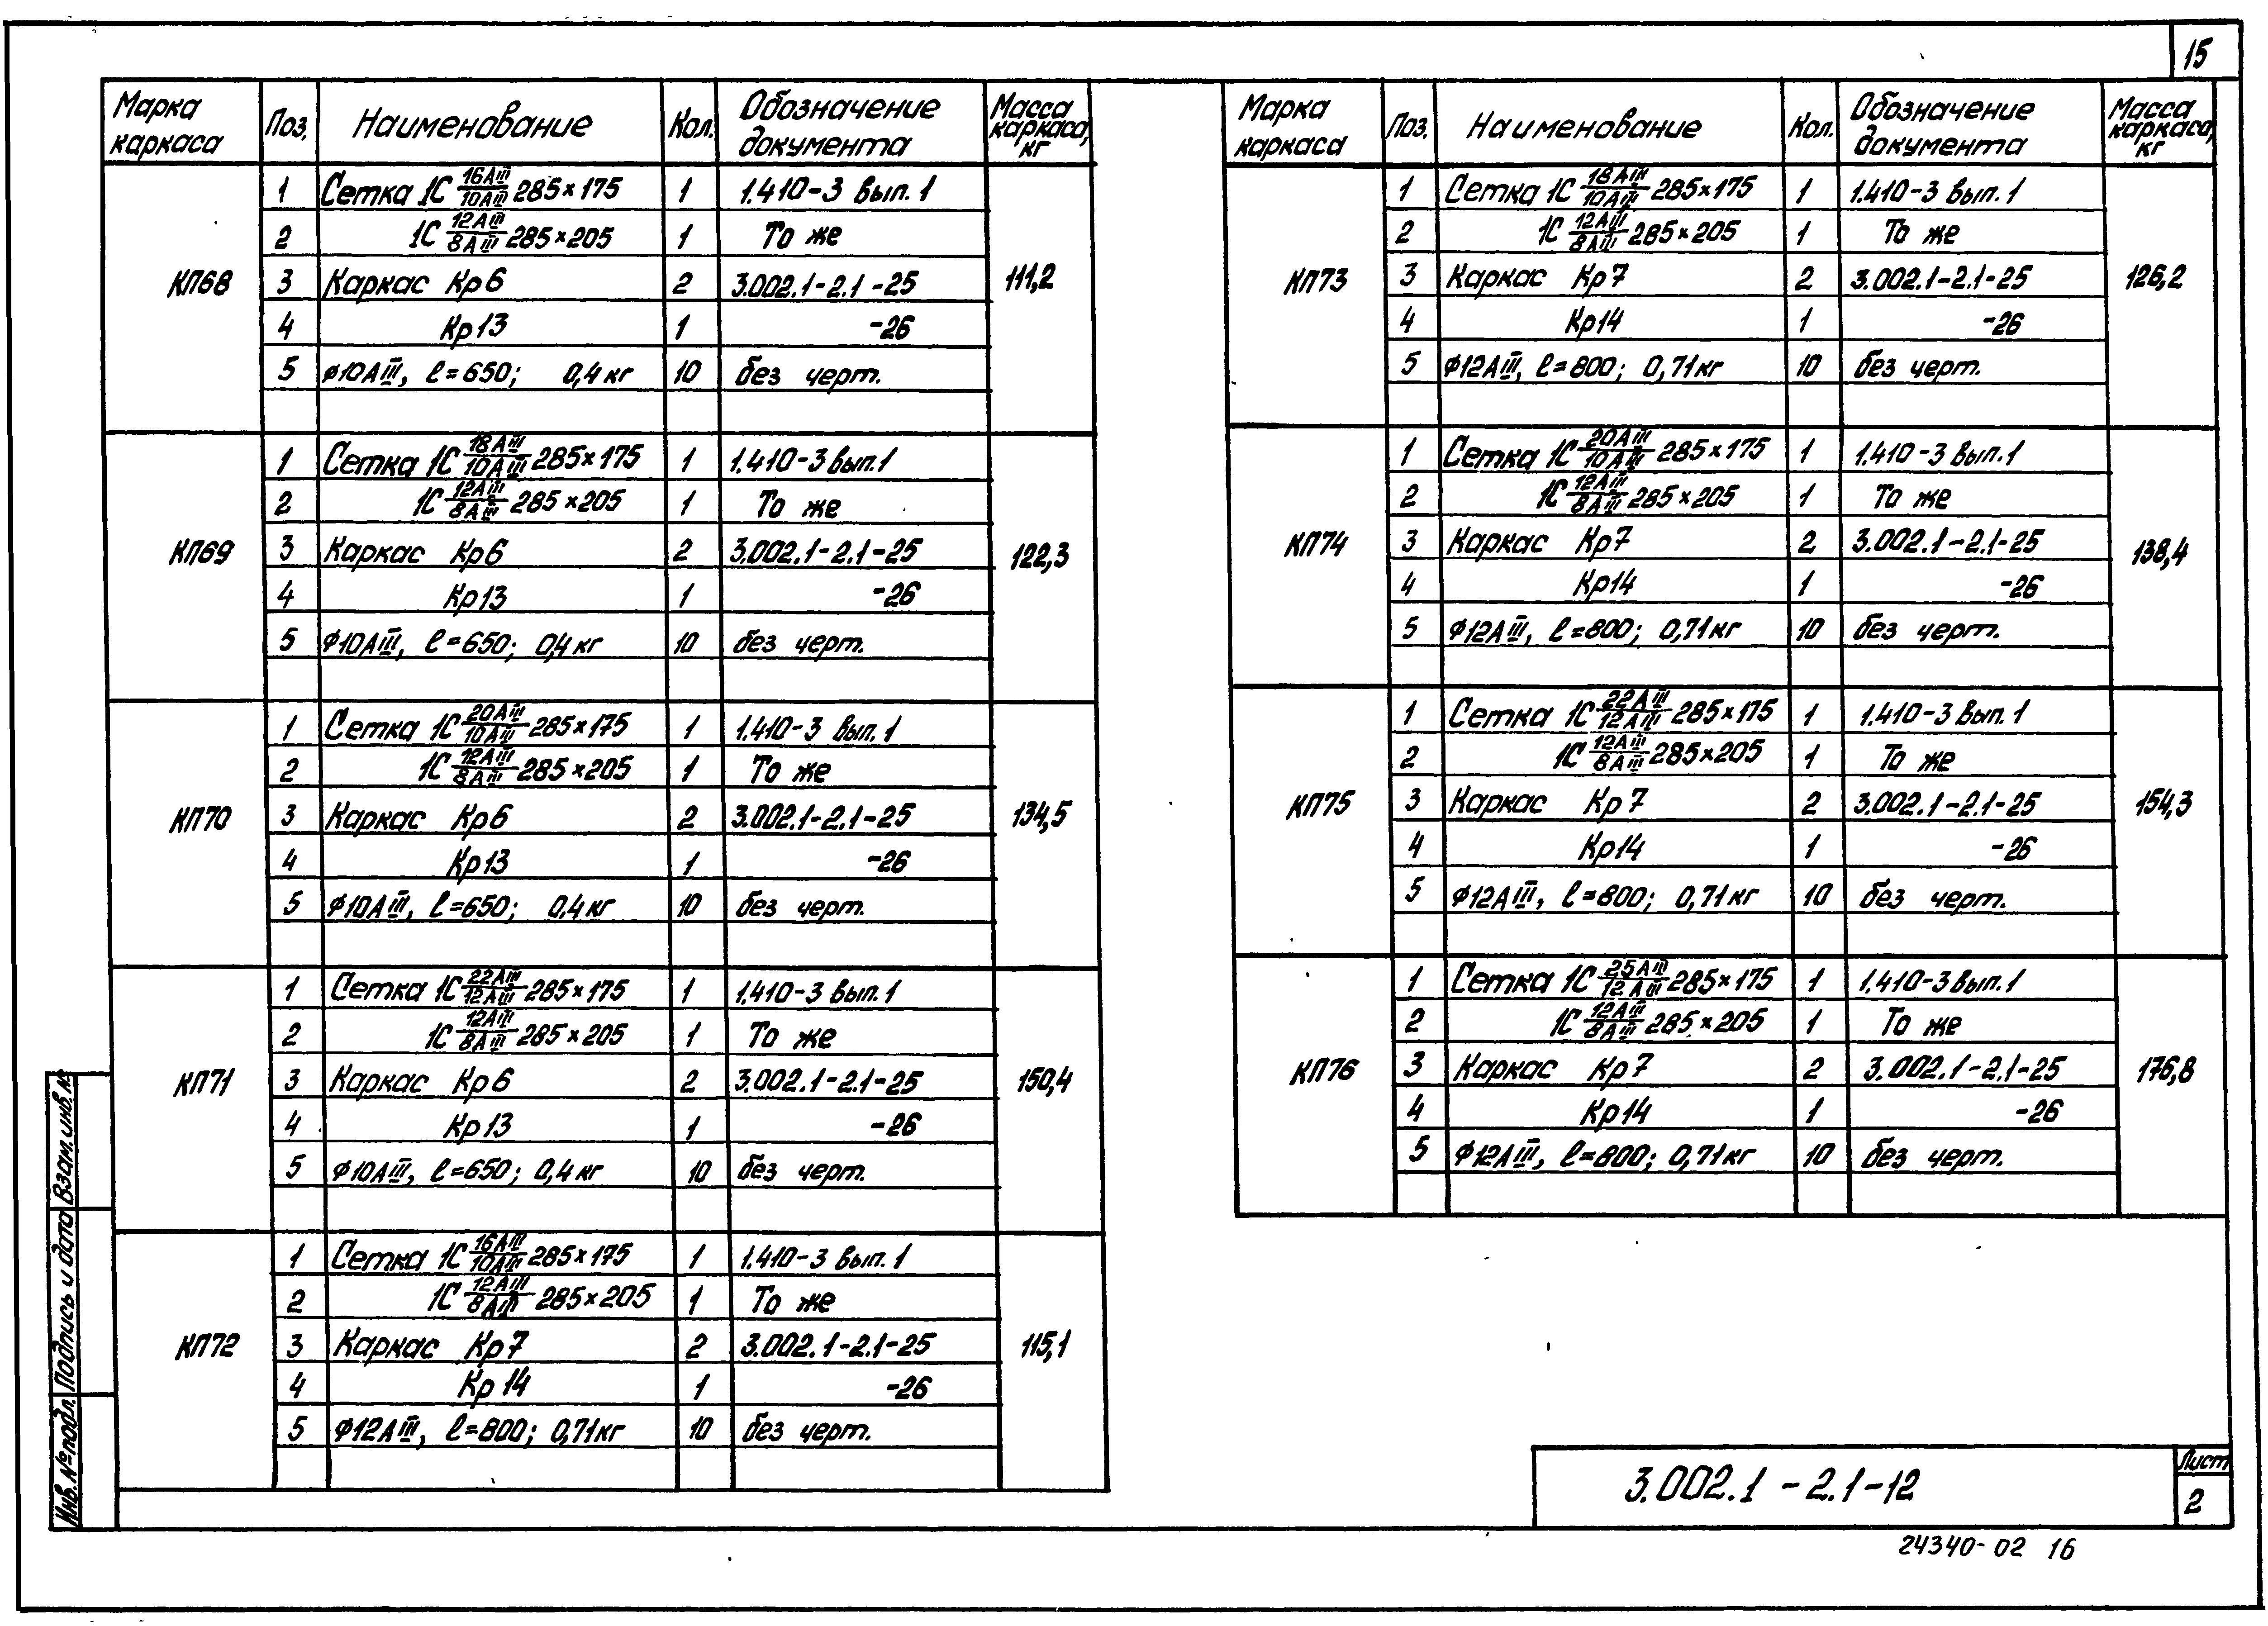 15
Марка каркаса Поз. Наименование Кол. Обозначение документа Масса каркаса, кг
КП68 111,2
1 Сетка 1С 16АIII/10АIII 285×175 1 1.410-3 вып. 1
2 1С 12АIII/8АIII 285×205 1 То же
3 Каркас Кр6 2 3.002.1-2.1-25
4 Кр13 1 -26
5 ø10АIII, ℓ=650; 0,4кг 10 без черт.
КП69 122,3
1 Сетка 1С 18АIII/10АIII 285×175 1 1.410-3 вып. 1
2 1С 12АIII/8АIII 285×205 1 То же
3 Каркас Кр6 2 3.002.1-2.1-25
4 Кр13 1 -26
5 ø10АIII, ℓ=650; 0,4кг 10 без черт.
КП70 134,5
1 Сетка 1С 20АIII/10АIII 285×175 1 1.410-3 вып. 1
2 1С 12АIII/8АIII 285×205 1 То же
3 Каркас Кр6 2 3.002.1-2.1-25
4 Кр13 1 -26
5 ø10АIII, ℓ=650; 0,4кг 10 без черт.
КП71 150,4
1 Сетка 1С 22АIII/12АIII 285×175 1 1.410-3 вып. 1
2 1С 12АIII/8АIII 285×205 1 То же
3 Каркас Кр6 2 3.002.1-2.1-25
4 Кр13 1 -26
5 ø10АIII, ℓ=650; 0,4кг 10 без черт.
КП72 115,1
1 Сетка 1С 16АIII/10АIII 285×175 1 1.410-3 вып. 1
2 1С 12АIII/8АIII 285×205 1 То же
3 Каркас Кр7 2 3.002.1-2.1-25
4 Кр14 1 -26
5 ø12АIII, ℓ=800; 0,71кг 10 без черт.
Марка каркаса Поз. Наименование Кол. Обозначение документа Масса каркаса, кг
КП73 126,2
1 Сетка 1С 18АIII/10АIII 285×175 1 1.410-3 вып. 1
2 1С 12АIII/8АIII 285×205 1 То же
3 Каркас Кр7 2 3.002.1-2.1-25
4 Кр14 1 -26
5 ø12АIII, ℓ=800; 0,71кг 10 без черт.
КП74 138,4
1 Сетка 1С 20АIII/10АIII 285×175 1 1.410-3 вып. 1
2 1С 12АIII/8АIII 285×205 1 То же
3 Каркас Кр7 2 3.002.1-2.1-25
4 Кр14 1 -26
5 ø12АIII, ℓ=800; 0,71кг 10 без черт.
КП75 154,3
1 Сетка 1С 22АIII/12АIII 285×175 1 1.410-3 вып. 1
2 1С 12АIII/8АIII 285×205 1 То же
3 Каркас Кр7 2 3.002.1-2.1-25
4 Кр14 1 -26
5 ø12АIII, ℓ=800; 0,71кг 10 без черт.
КП76 176,8
1 Сетка 1С 25АIII/12АIII 285×175 1 1.410-3 вып. 1
2 1С 12АIII/8АIII 285×205 1 То же
3 Каркас Кр7 2 3.002.1-2.1-25
4 Кр14 1 -26
5 ø12АIII, ℓ=800; 0,71кг 10 без черт.
Инв. № подл. Подпись и дата Взам. инв. №
3.002.1-2.1-12
Лист
2
24340-02 16